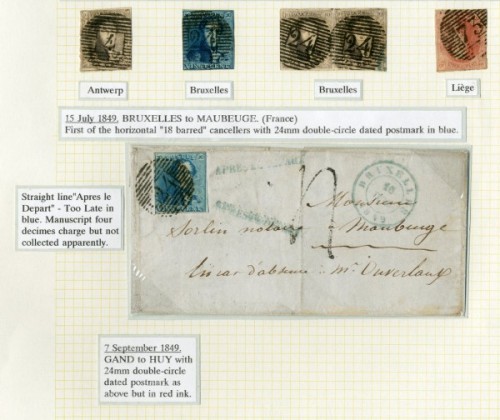 4
24
24
24
Antwerp
Bruxelles
Bruxelles
Liège
15 July 1849. BRUXELLES to MAUBEUGE. (France)
First of the horizontal "18 barred" cancellers with 24mm double-circle dated postmark in blue.
Straight line"Apres le
Depart" - Too Late in
blue. Manuscript four
decimes charge but not
collected apparently.
BRUXELLES
1849
Monsieur
Sorlin notaire à Maubeuge
En cas d'absence Mr Ouverlaux
7 September 1849.
GAND to HUY with
24mm double-circle
dated postmark as
above but in red ink.